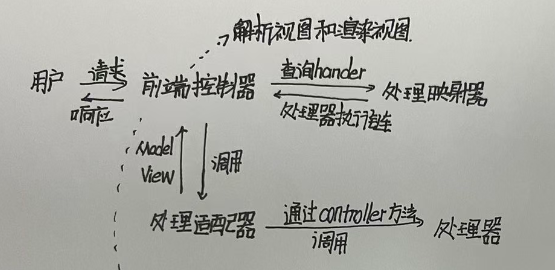 解析视图和渲染视图.
用户 请求 前端控制器 查询hander 处理映射器
响应 处理器执行链
Model 调用
View
处理适配器 通过controller方法 处理器
调用